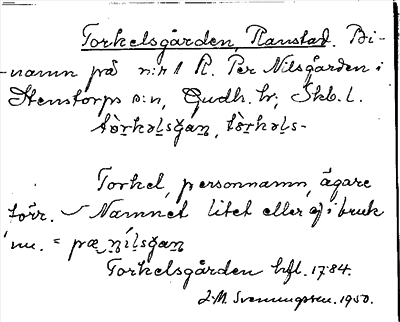 Torkelsgården, Ranstad. Bi-
namn på n:r 1 R. Per Nilsgården i
Stenstorps s:n, Gudh. hr, Skb. l.
tòrkəlsgan, tòrkəls-
Torkel, personnamn, ägare
förr. Namnet litet eller ej i bruk
nu. = pæ nilsgan
Torkelsgården hfl. 1784.
J.M. Svenningsson. 1950.